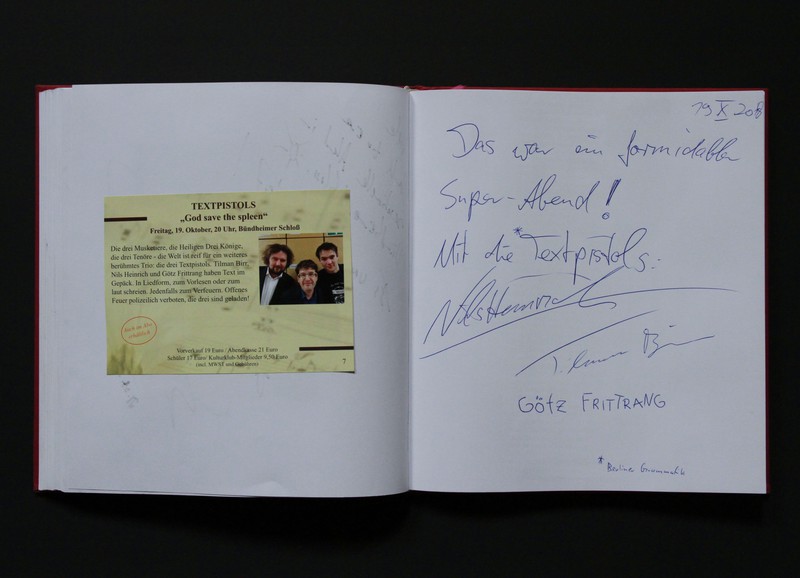 TEXTPISTOLS
„God save the spleen“
Freitag, 19. Oktober, 20 Uhr, Bündheimer Schloß
Die drei Musketiere, die Heiligen Drei Könige,
die drei Tenöre - die Welt ist reif für ein weiteres
berühmtes Trio: die drei Textpistols. Tilman Birr,
Nils Heinrich und Götz Frittrang haben Text im
Gepäck. In Liedform, zum Vorlesen oder zum
laut schreien. Jedenfalls zum Verfeuern. Offenes
Feuer polizeilich verboten, die drei sind geladen!
Vorverkauf 19 Euro / Abendkasse 21 Euro
Schüler 17 Euro/ Kulturklub-Mitglieder 9,50 Euro
(incl. MWST und Gebühren)
7
19 X 208
Das war ein formidabler
Super-Abend!
Mit die *Textpistols.
Nils Heinrich
Tilman Birr
GÖTZ FRITTRANG
* Berliner Grammatik